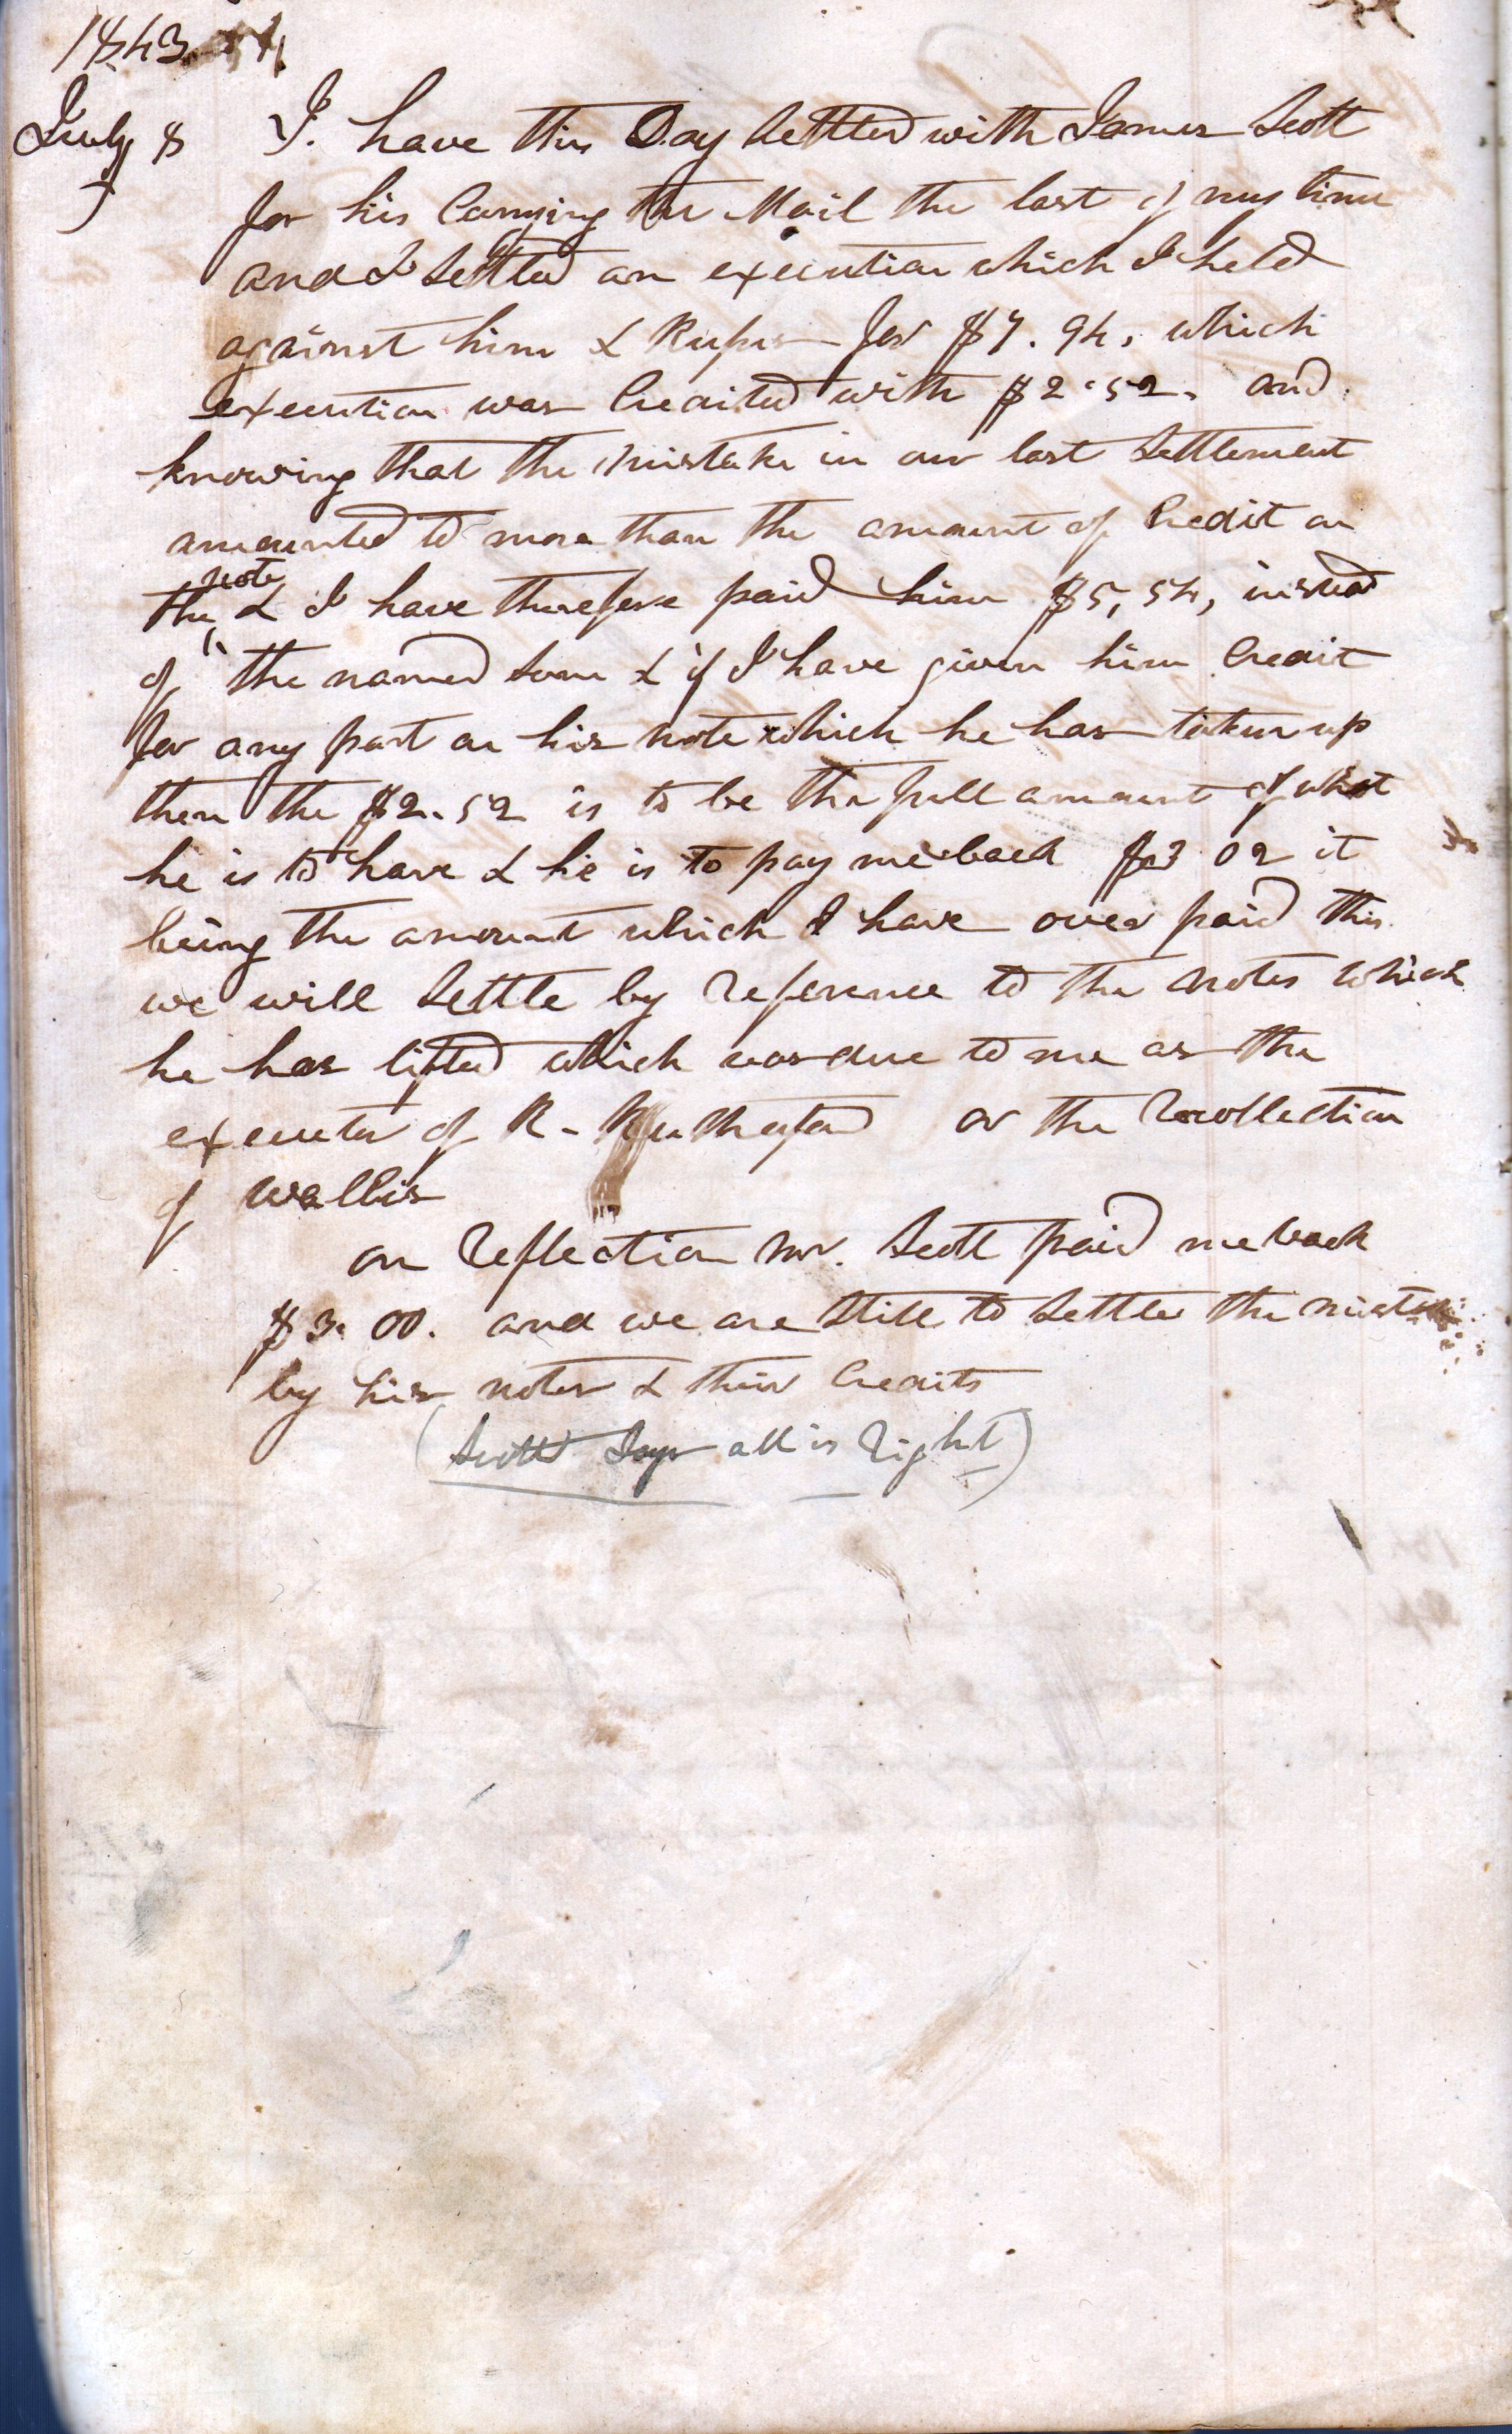 1843
July 8 I. have this Day Settled with James Scott
for his Carrying the Mail the last of my time
and I Settled an execution which I held
against him & Rufus for $7.94, which
execution was Credited with $2.52. and
knowing that the mistake in our last Settlement
amounted to more than the amount of Credit on
the note & I have therefore paid him $5,54, instead
of the named Sum & if I have given him Credit
for any part on his note which he has taken up
then the $2.52 is to be the full amount of what
he is to have & he is to pay me back $3 02 it
being the amount which I have over paid this
we will Settle by Reference to the notes which
he has lifted which was due to me as the
executor of R. Rutherford or the Recollection
of Wallis
on Reflection Mr. Scott paid me back
$3.00. and we are Still to Settle the mistake
by his notes & their Credits
(Scott Says all is Right)